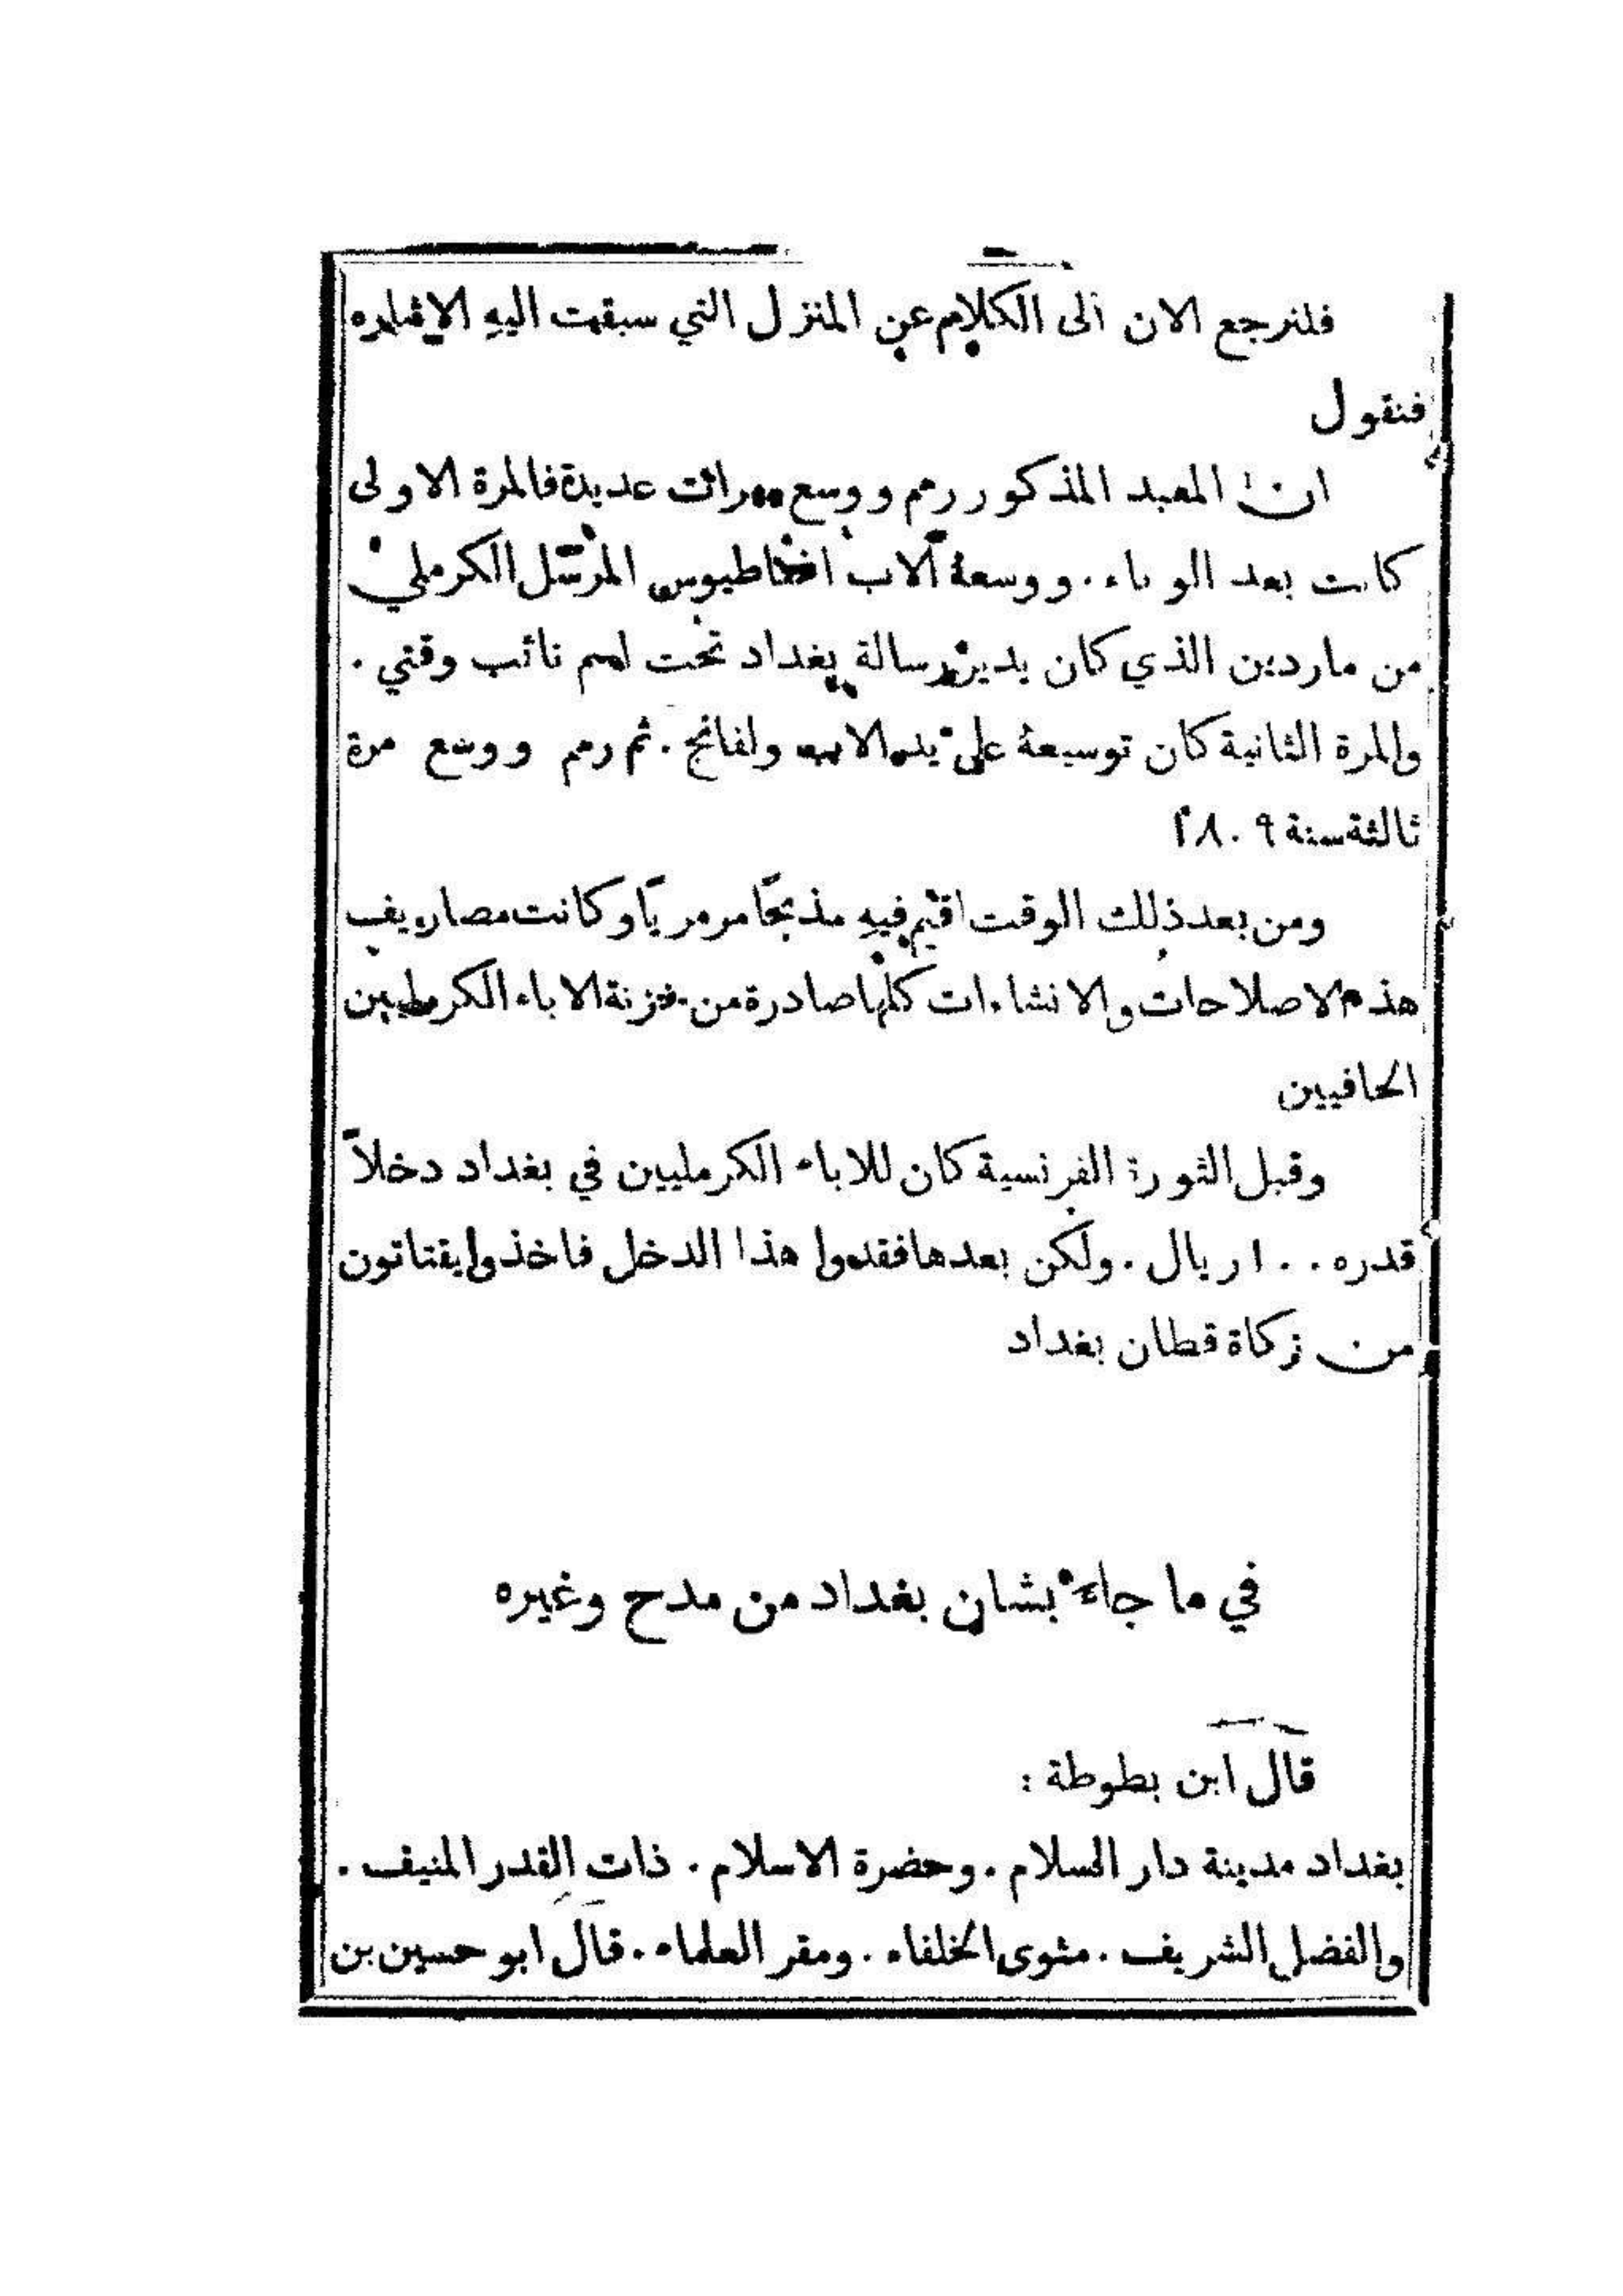 فلنرجع الان الى الكلام عن المنزل التي سبقت اليهِ الاشاره
فنقول
ان المعبد المذكور رمم ووسع مرات عديدة فالمرة الاولى
كانت بعد الوباء . ووسعهُ الاب اغناطيوس المرسل الكرملي
من ماردين الذي كان يدير رسالة بغداد تحت اسم نائب وقتي .
والمرة الثانية كان توسيعهُ على يد الاب ولفانج . ثم رمم ووسع مرة
ثالثة سنة ١٨٠٩
ومن بعد ذلك الوقت اقيم فيهِ مذبحًا مرمريًا وكانت مصاريف
هذه الاصلاحات والانشاءات كلها صادرة من خزنة الاباء الكرمليين
الحافيين
وقبل الثورة الفرنسية كان للاباء الكرمليين في بغداد دخلاً
قدره ١٠٠ ريال . ولكن بعدها فقدوا هذا الدخل فاخذوا يقتاتون
من زكاة قطان بغداد
في ما جاء بشان بغداد من مدح وغيره
قال ابن بطوطة :
بغداد مدينة دار السلام . وحضرة الاسلام . ذات القدر المنيف .
والفضل الشريف . مثوى الخلفاء . ومقر العلماء . قال ابو حسين بن